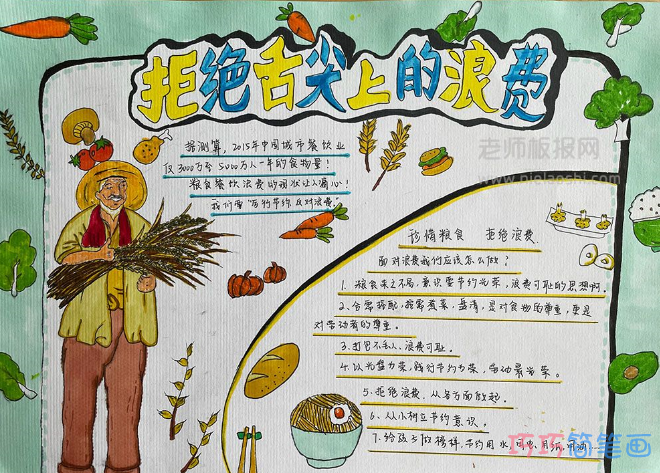 拒绝舌尖上的浪费
据测算，2015年中国城市餐饮业
仅3000万至5000万人一年的食物量！
粮食餐饮浪费的现状让人痛心！
我们要厉行节约 反对浪费
珍惜粮食 拒绝浪费
面对浪费我们应该怎么做？
1、粮食来之不易，意识要节约光荣，浪费可耻的思想啊。
2、合需搭配，按需煮菜，盘清，是对食物的尊重，更是
对劳动者的尊重。
3、打包不丢人、浪费可耻。
4、以光盘为荣，践行节约为荣，劳动最光荣。
5、拒绝浪费，从各方面做起。
6、从小树立节约意识。
7、给孩子做榜样，节约用水
老师板报网
www.pielaoshi.com
巧巧简笔画